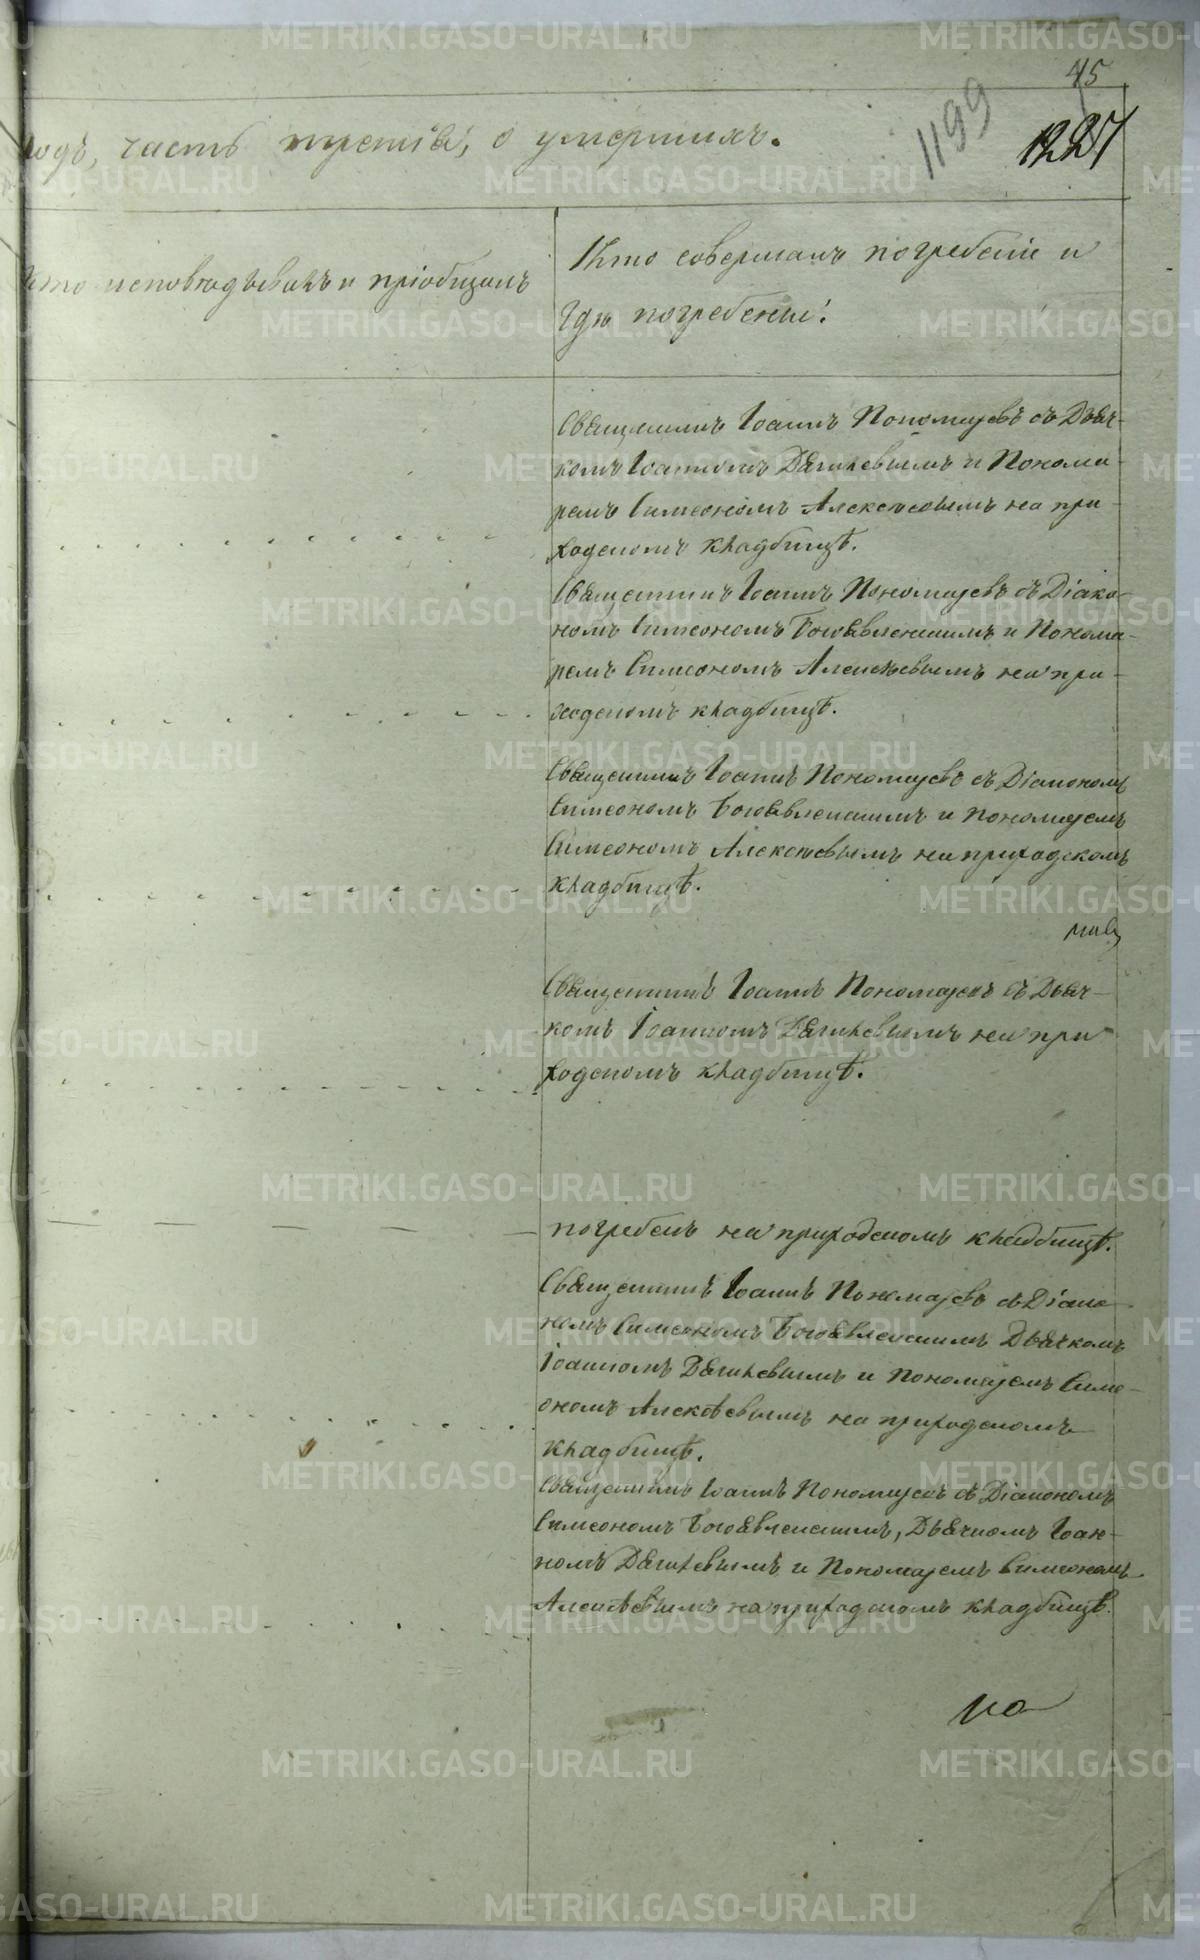 45
1199
1227
годъ, часть третія, о умершихъ.
Кто исповѣдывалъ и пріобщалъ
Кто совершалъ погребеніе и
гдѣ погребены.
Священникъ Іоаннъ Пономаревъ съ Дьяч-
комъ Іоанномъ Дягилевымъ и Понома-
ремъ Симеономъ Алексѣевымъ на при-
ходскомъ кладбищѣ.
Священникъ Іоаннъ Пономаревъ съ Діако-
номъ Симеономъ Богоявленскимъ и Понома-
ремъ Симеономъ Алексѣевымъ на при-
ходскомъ кладбищѣ.
Священникъ Іоаннъ Пономаревъ съ Діакономъ
Симеономъ Богоявленскимъ и Пономаремъ
Симеономъ Алексѣевымъ на приходскомъ
кладбищѣ.
Священникъ Іоаннъ Пономаревъ съ Дьяч-
комъ Іоанномъ Дягилевымъ на при
ходскомъ кладбищѣ.
погребенъ на приходскомъ кладбищѣ.
Священникъ Іоаннъ Пономаревъ съ Діако-
номъ Симеономъ Богоявленскимъ Дьячкомъ
Іоанномъ Дягилевымъ и Пономаремъ Симе-
ономъ Алексѣевымъ на приходскомъ
кладбищѣ.
Священникъ Іоаннъ Пономаревъ съ Діакономъ
Симеономъ Богоявленскимъ, Дьячкомъ Іоан-
номъ Дягилевымъ и Пономаремъ Симеономъ
Алексѣевымъ на приходскомъ кладбищѣ.
METRIKI.GASO-URAL.RU